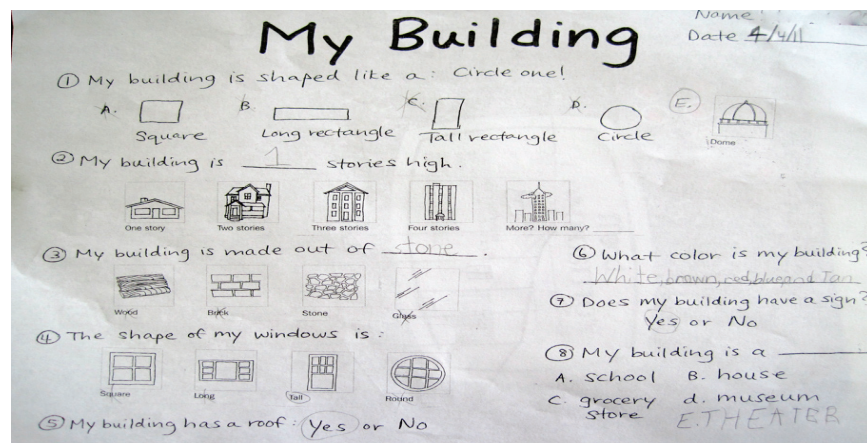 My Building
Name
Date 4/4/11
① My building is shaped like a: Circle one!
A. B. C. D. E.
Square Long rectangle Tall rectangle Circle Dome
② My building is 1 stories high.
One story Two stories Three stories Four stories More? How many?
③ My building is made out of stone.
Wood Brick Stone Glass
④ The shape of my windows is:
Square Long Tall Round
⑤ My building has a roof: Yes or No
⑥ What color is my building?
White, brown, red, blue, and Tan
⑦ Does my building have a sign?
Yes or No
⑧ My building is a
A. school B. house
C. grocery store d. museum
E. THEATER